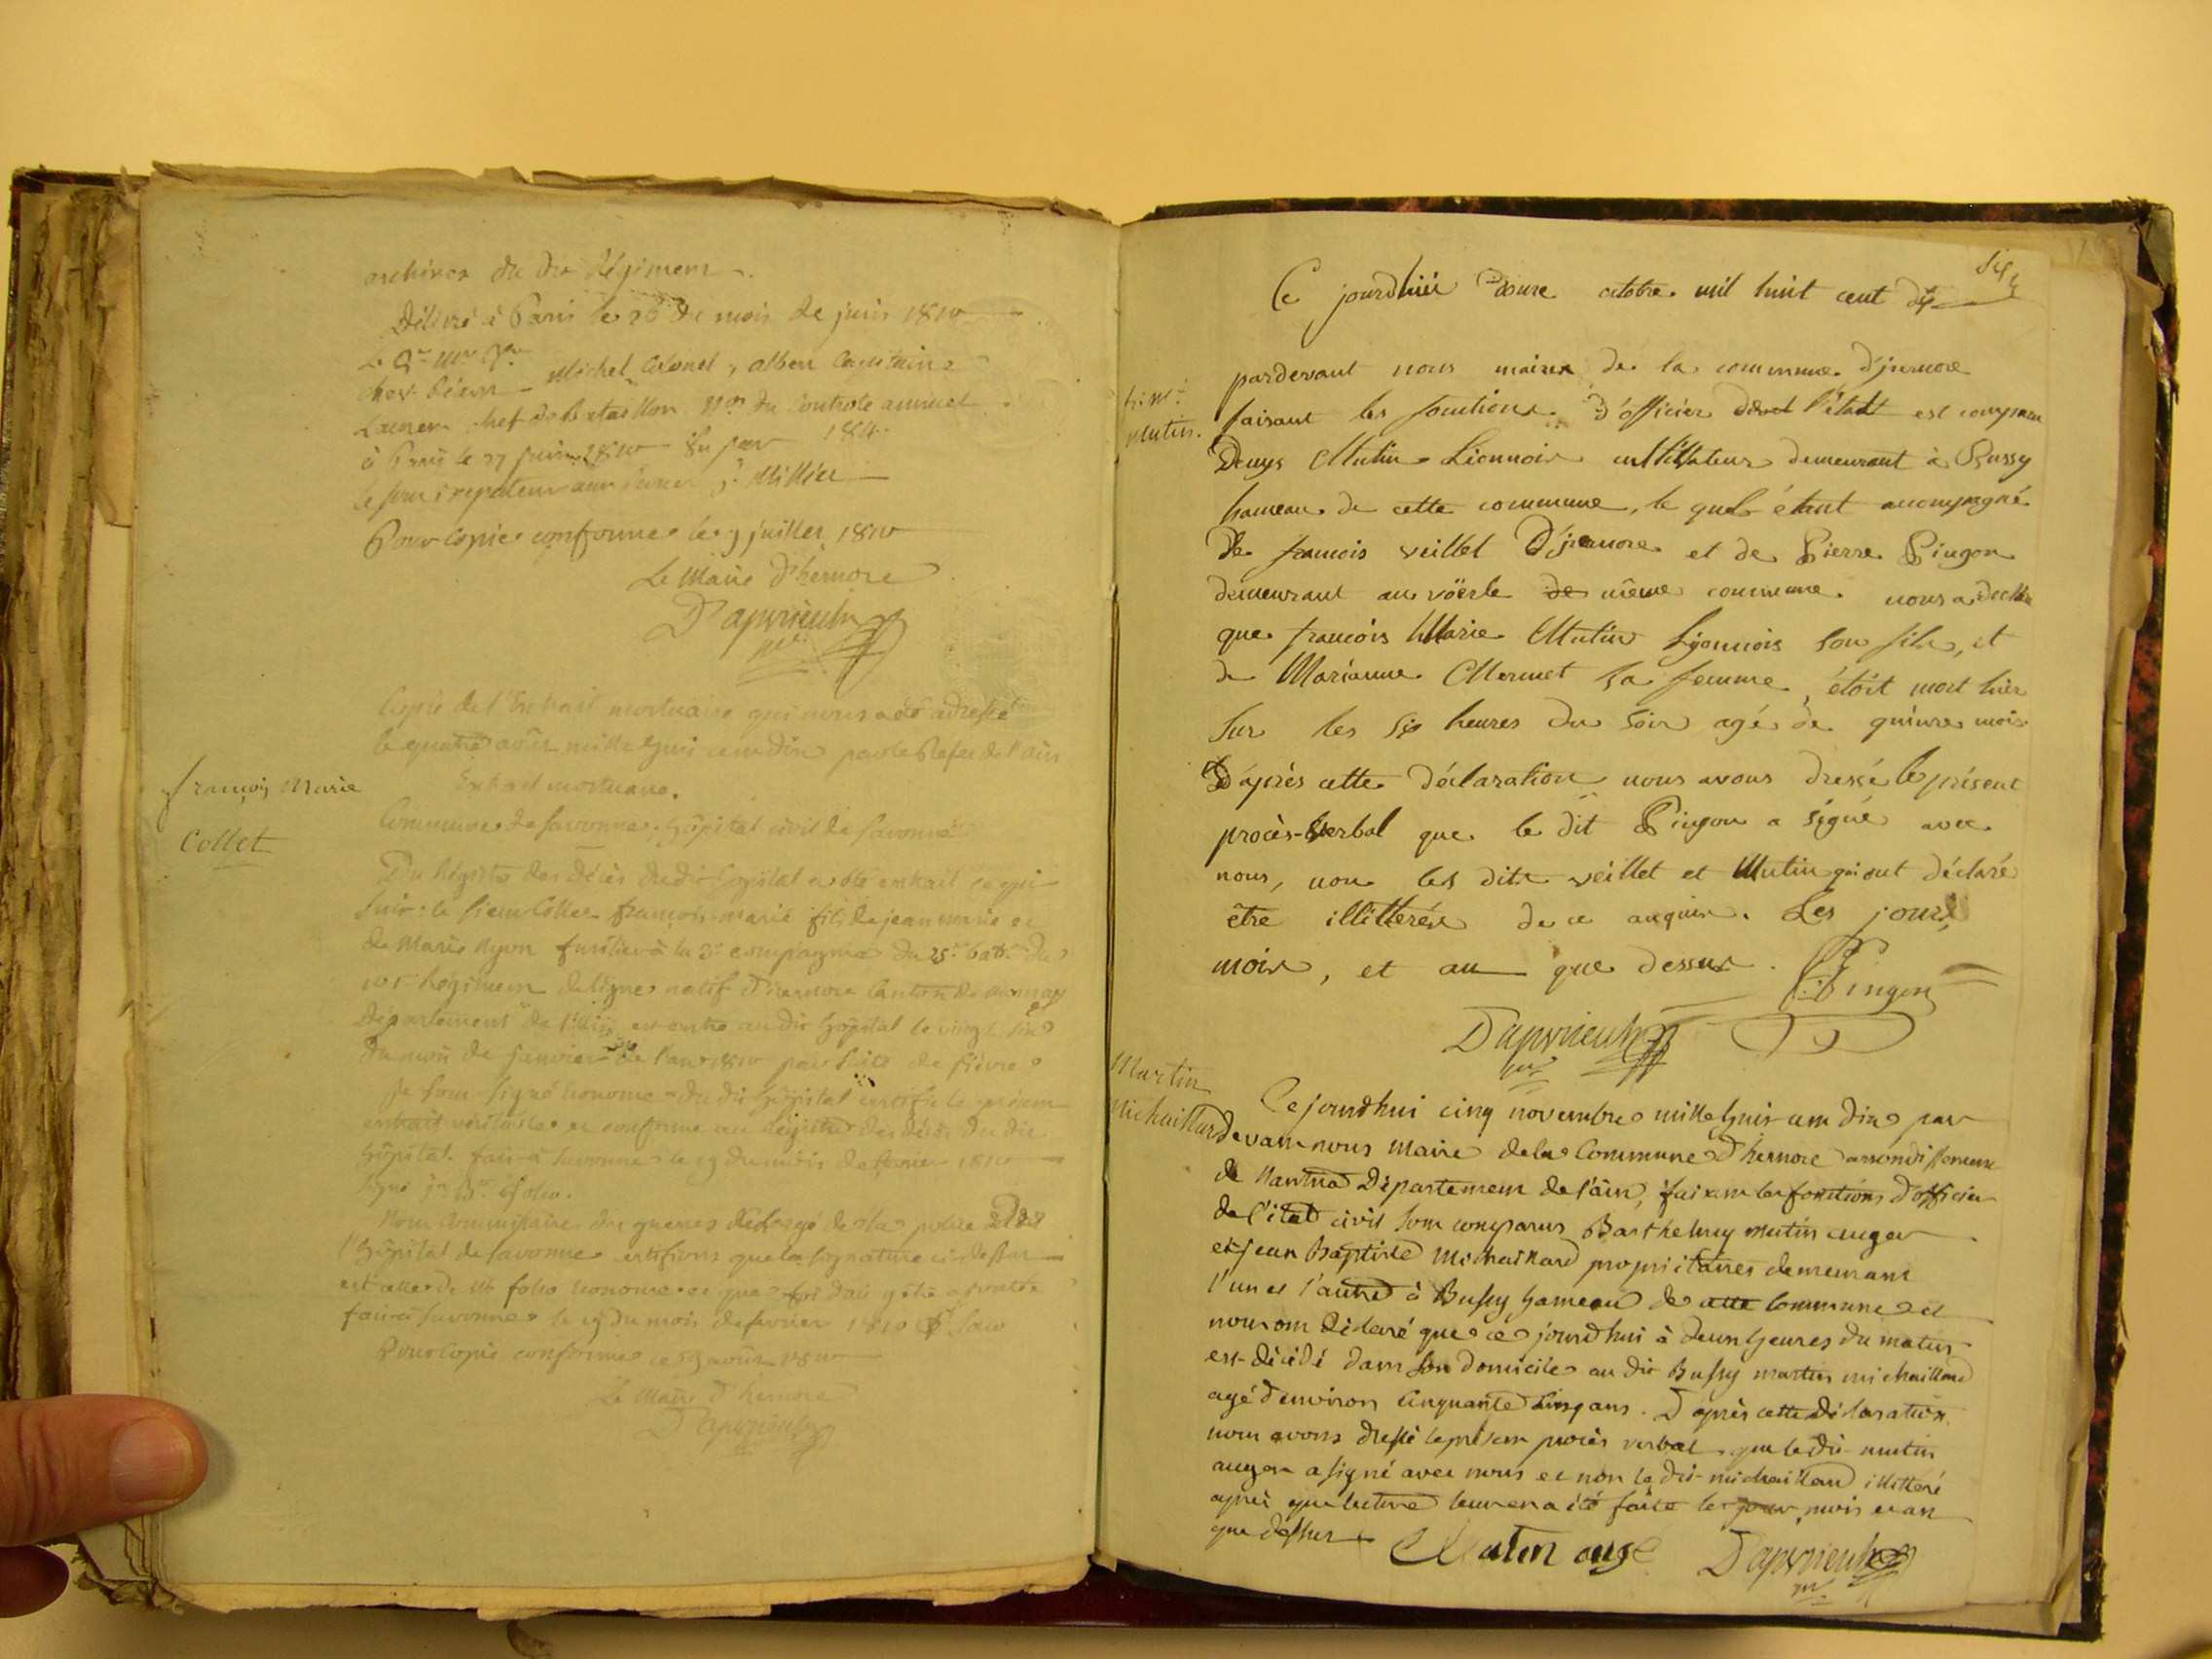 archives du dit Régiment.
Délivré à Paris le 26 du mois de juin 1810
Michel Colonel, albert Capitaine
chef de bataillon du Controle annuel
à Paris le 27 juin 1810
le sous inspecteur aux Millier
Pour Copie conforme le 9 juillet 1810
Le Maire d'hernore
Dapvrieulx
Copie de l'Extrait mortuaire qui nous a été adressé
le quatre août mille huit cent dix par le Prefet de l'ain
Extrait mortuaire.
françois Marie
Collet
Commune de Savonne. hôpital civil de Savonne
Du Régistre des décès du dit hopital a été extrait ce qui
suit: le sieur Collet françois marie fils de jean marie et
de Marie Nyon fusilier à la 3e compagnie du 25e bat.on du
Régiment de ligne natif d'hernore Canton de
département de l'Ain est entré au dit hopital le vingt six
du mois de janvier de l'an 1810 par suite de fièvre
je sous signé econome du dit hôpital certifie le présent
extrait véritable et conforme au Régistre des décès du dit
hôpital. fait à Savonne le 19 du mois de fevrier 1810
signé folio.
Nous Commissaire des guerres chargé de la police du dit
l'hôpital de Savonne certifions que la signature ci-dessus
est celle de M. folio econome et que foi doit y être ajoutée
fait à Savonne le 19 du mois de fevrier 1810
Pour Copie conforme ce 19 août 1810
Le Maire d'hernore
Dapvrieulx
Ce jourdhui douze octobre mil huit cent dix
pardevant nous maire de la commune d'jzernore
mutin.
faisant les fonctions d'officier de l'état est comparu
Denys Mutin Lionnois cultivateur demeurant à Bussy
hameau de cette commune, le quel étant accompagné
De francois veillet D'jzernore et de Pierre Pingon
demeurant au voërle de même commune. nous a declaré
que francois Marie Mutin Lyonnois son fils, et
de Marianne Mermet sa femme, étoit mort hier
sur les six heures du soir agé de quinze mois
D'après cette déclaration nous avons dressé le présent
procès-verbal que le dit Pingon a signé avec
nous, non les dits veillet et Mutin qui ont déclaré
être illittérés de ce enquis. Les jour,
mois, et an que dessus.
Pingon
Dapvrieulx
Martin
Michaillard
Ce jourdhui cinq novembre mille huit cent dix par
devant nous Maire de la Commune d'hernore arrondissement
de Nantua Département de l'ain, faisant les fonctions d'officier
de l'état civil sont comparus Barthelemy mutin auger
et jean Baptiste Michaillard propriétaires demeurant
l'un et l'autre à Bussy hameau de cette Commune et
nous ont déclaré que ce jourdhui à deux heures du matin
est décédé dans son domicile au dit Bussy martin michaillard
agé d'environ Cinquante cinq ans. D'après cette déclaration
nous avons dressé le présent procès verbal que le dit mutin
auger a signé avec nous et non le dit michaillard illittéré
après que lecture leur en a été faite les jour, mois et an
que dessus
Mutin auge Dapvrieulx